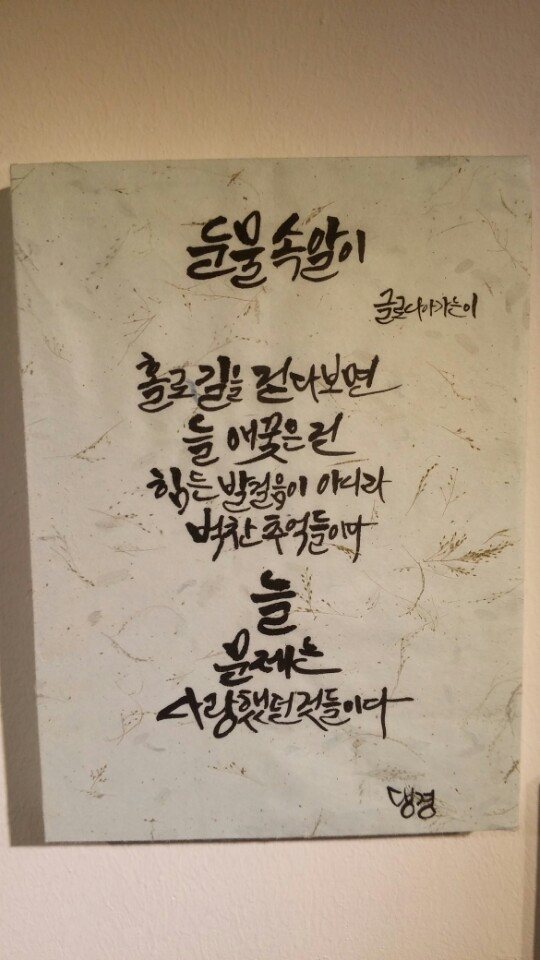 눈물 속앓이
글로나아가는이
홀로 길을 걷다보면
늘 애꿎은건
힘든 발걸음이 아니라
벅찬 추억들이다
늘
문제는
사랑했던것들이다
댕경